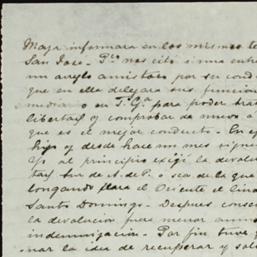 Maza informara en los mismos te
San José. Pr nos cito a una entre
un arreglo amistoso por su condu
que en ello delegara sus funcion
media o su Sria. para poder tra
libertad y comprobar de nuevo a
que es el mejor conducto. En
hijo y desde hace un mes sigue
Yo al principio exigí la devolu
tad Sur de A. de P. o sea de la que
longando para el Oriente el lind
Santo Domingo. Despues conse
la devolucion pero menor
indemnizacion. Por fin tuve q
nar la idea de recuperar y sol